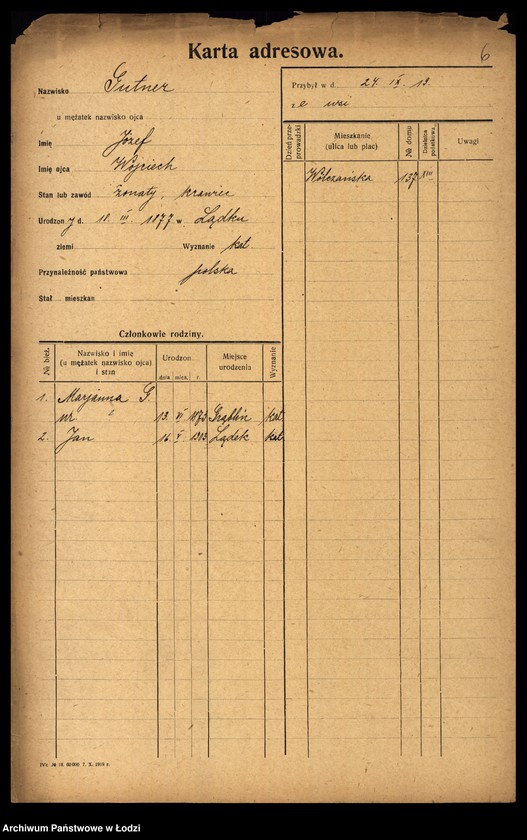 Karta adresowa.
6
Nazwisko Gutner
u mężatek nazwisko ojca
Imię Józef
Imię ojca Wojciech
Stan lub zawód żonaty, krawiec
Urodzon. y d. 18. III. 1877 w Lądku
ziemi Wyznanie kat.
Przynależność państwowa polska
Stał. mieszkan.
Przybył w d. 24. IX. 19.
ze wsi
Dzień przeprowadzki Mieszkanie (ulica lub plac) № domu Dzielnica podatkowa. Uwagi
Wólczańska 137 VIII
Członkowie rodziny.
№ bież. Nazwisko i imię (u mężatek nazwisko ojca) i stan Urodzon. dnia mies. r. Miejsce urodzenia Wyznanie
1. Marjanna G.
ur. 13. VI 1873 Grąblin kat
2. Jan 16. V. 1903 Lądek kat
IVz. № 18. 60 000 7. X. 1919 r.
Archiwum Państwowe w Łodzi